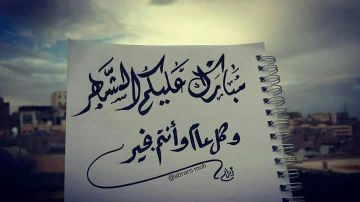 مبارك عليكم الشهر
وكل عام وأنتم بخير
@abraro moh